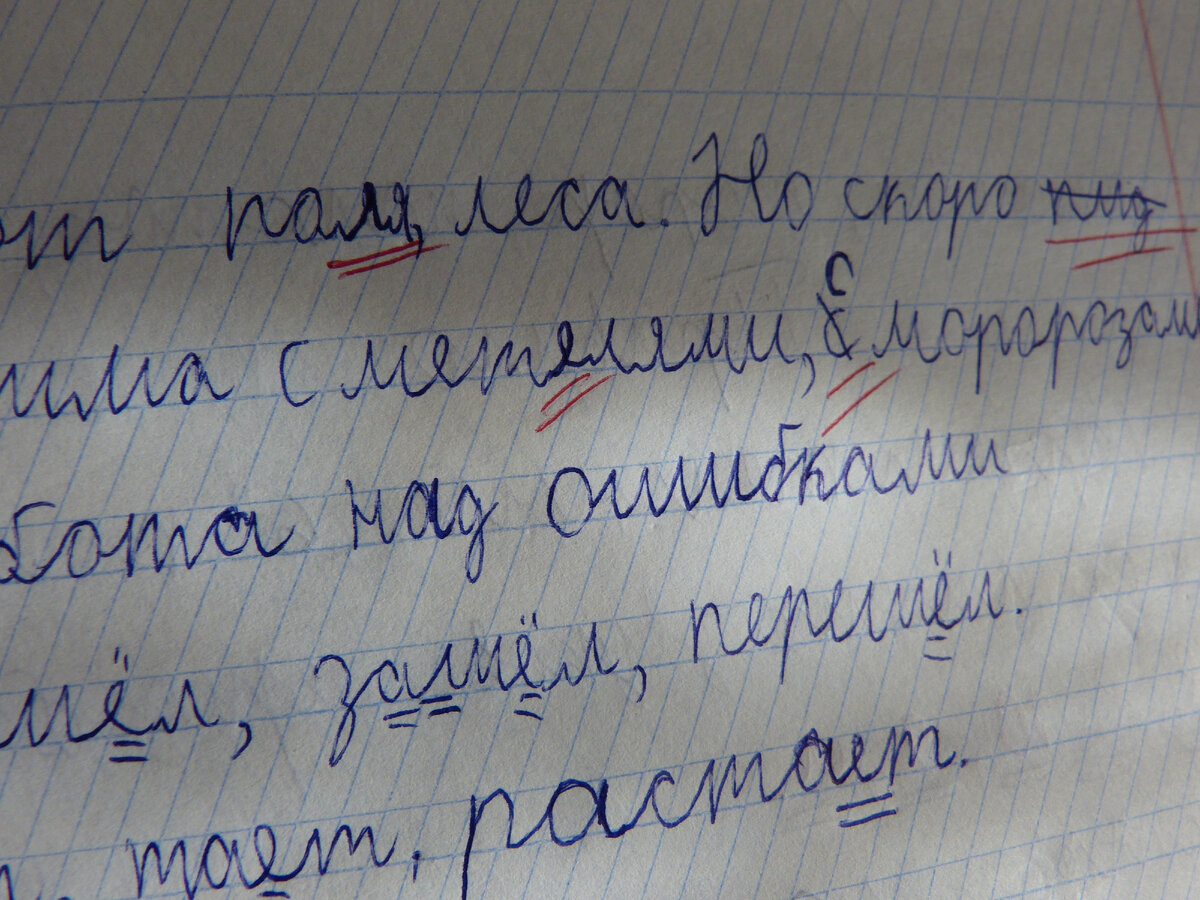 от паля, леса. Но скоро пид
има с метелями, с моророзами
бота над ошибками
шёл, зашёл, перешёл.
тает, растает.